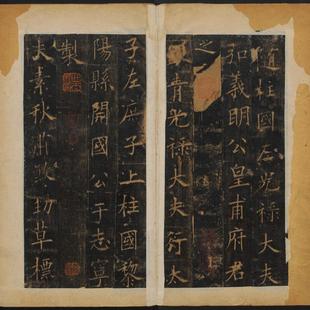 隨柱國左光祿大夫
弘義明公皇甫府君
之
青光祿大夫行太
子左庶子上柱國黎
陽縣開國公于志寧
製
夫素秋肅煞勁草標